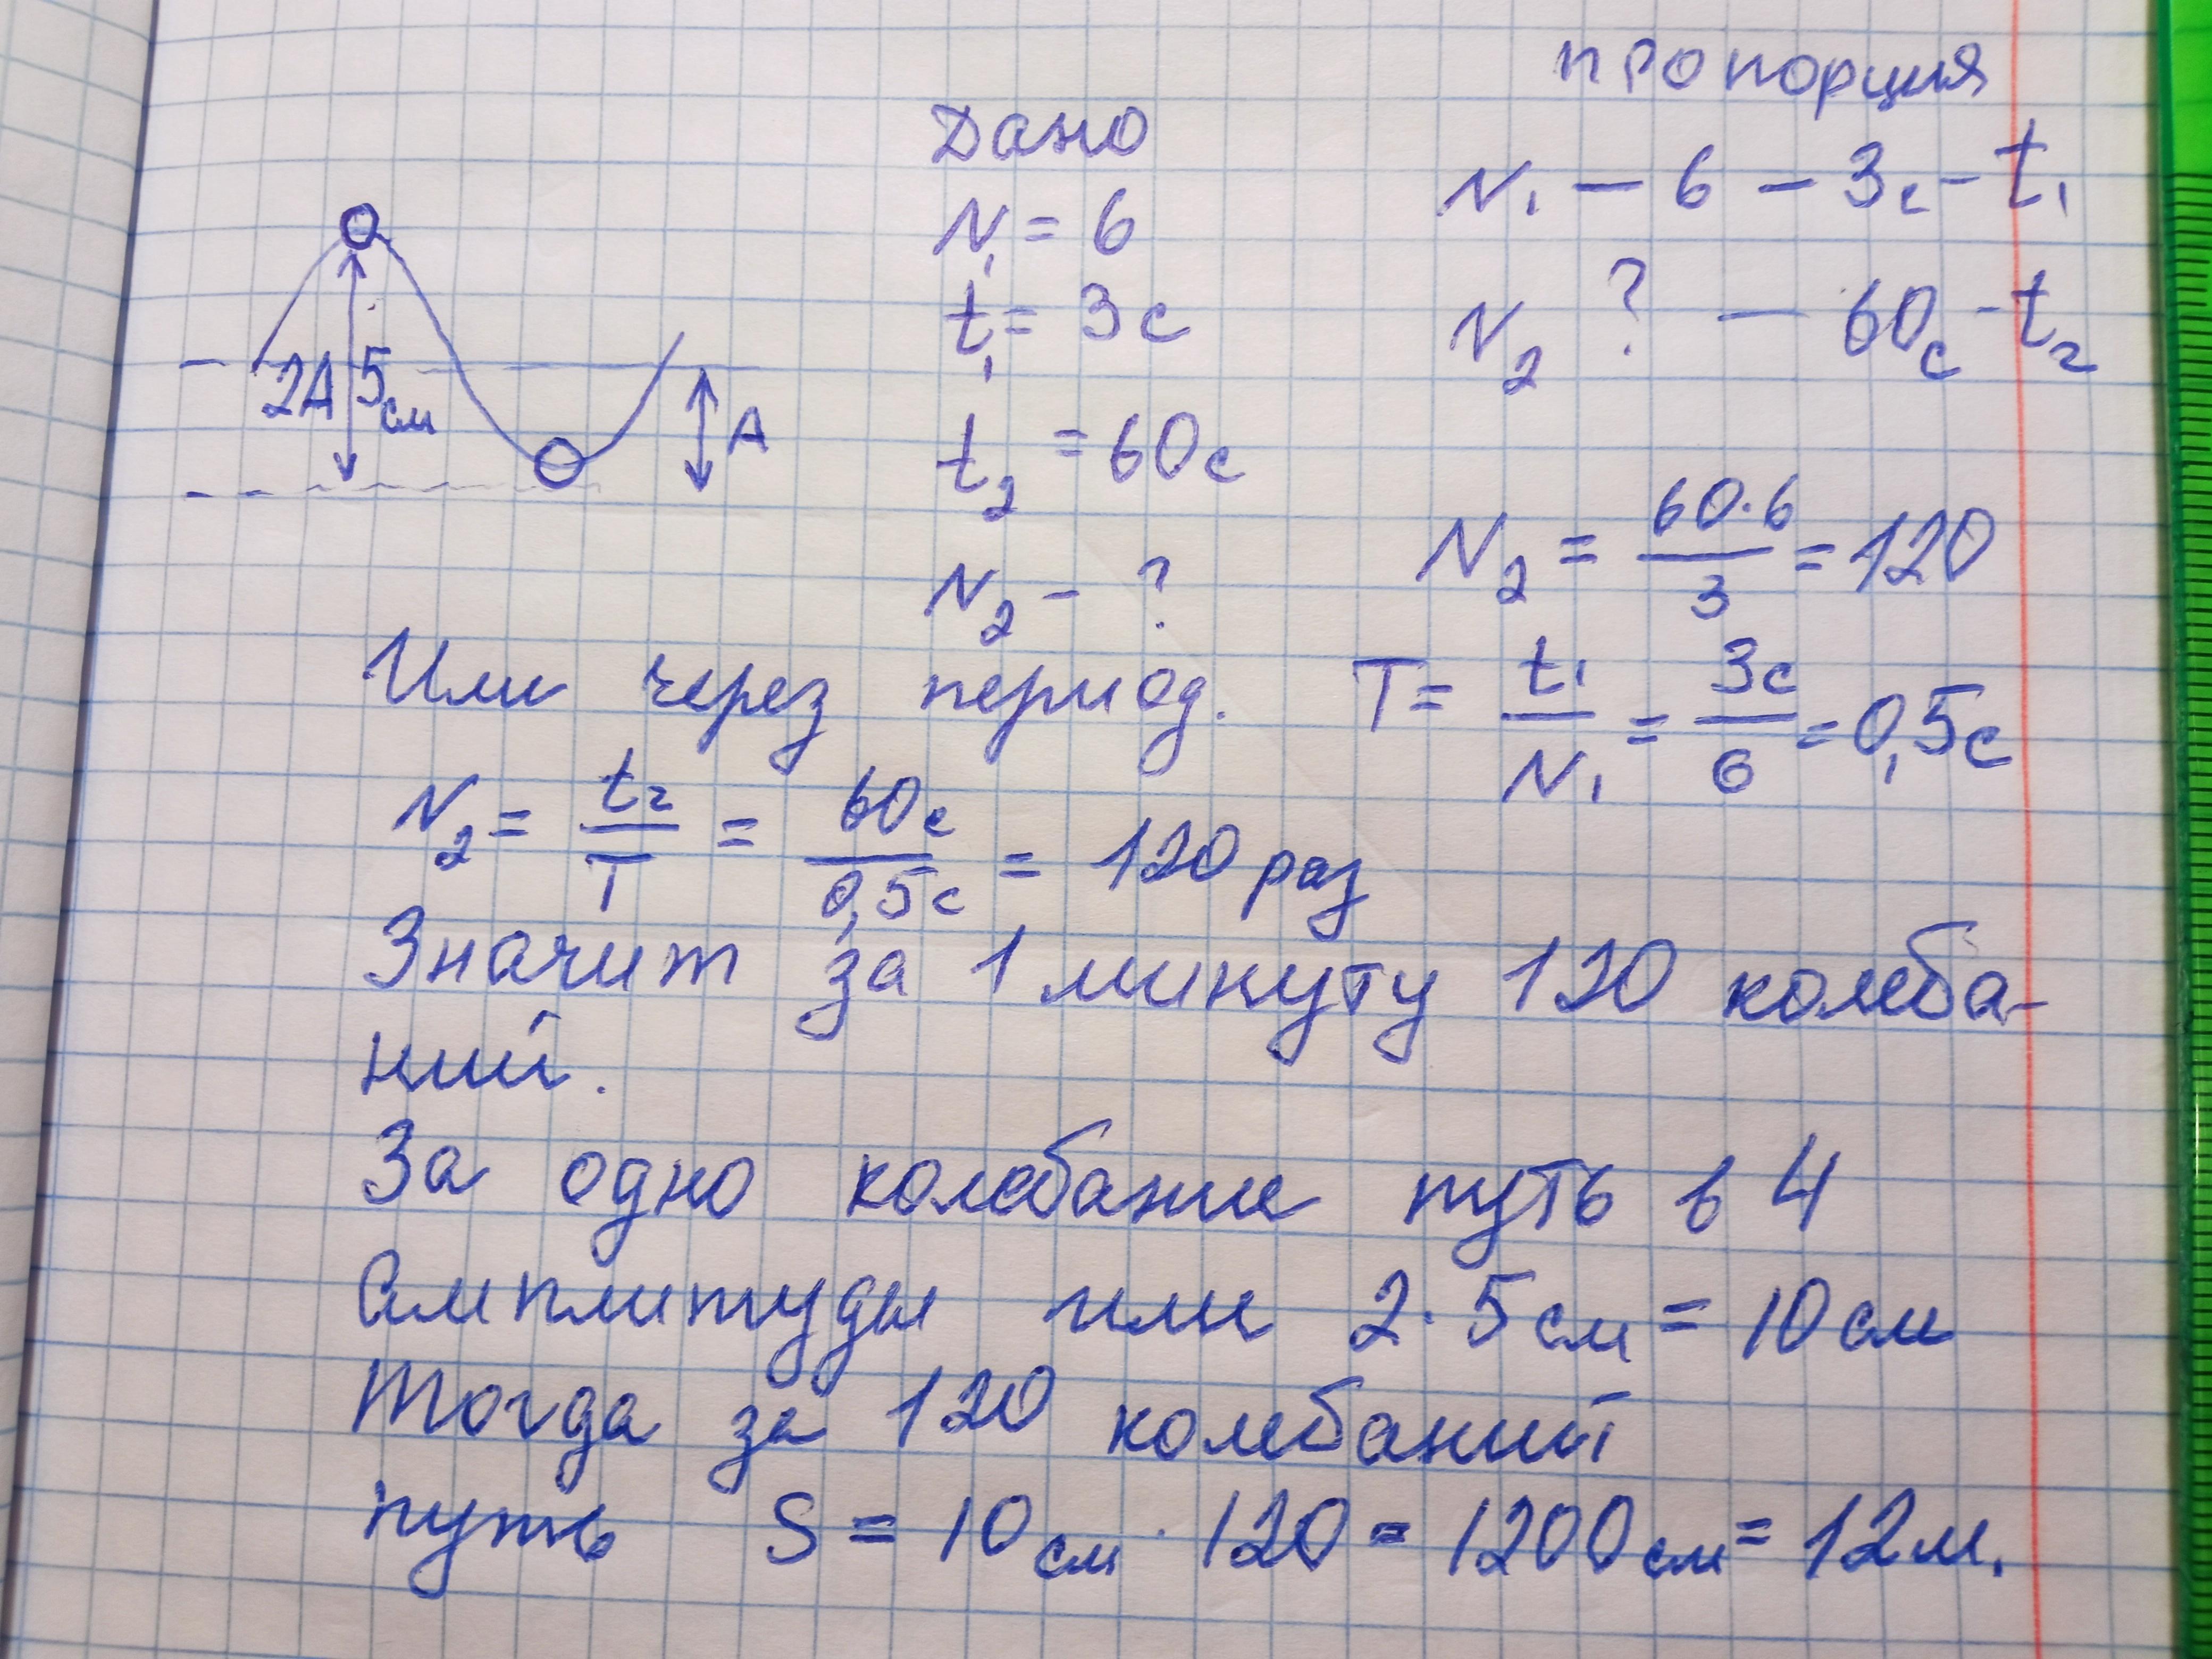 пропорция
Дано
N₁ = 6
t₁ = 3с
t₂ = 60с
N₂ - ?
N₁ — 6 — 3с - t₁
N₂ ? — 60с - t₂
N₂ = 60·6/3 = 120
2А 5см
А
Или через период. T = t₁/N₁ = 3с/6 = 0,5с
N₂ = t₂/T = 60с/0,5с = 120 раз
Значит за 1 минуту 120 колеба-
ний.
За одно колебание путь в 4
Амплитуды или 2·5см = 10см
Тогда за 120 колебаний
путь S = 10см · 120 = 1200см = 12м.